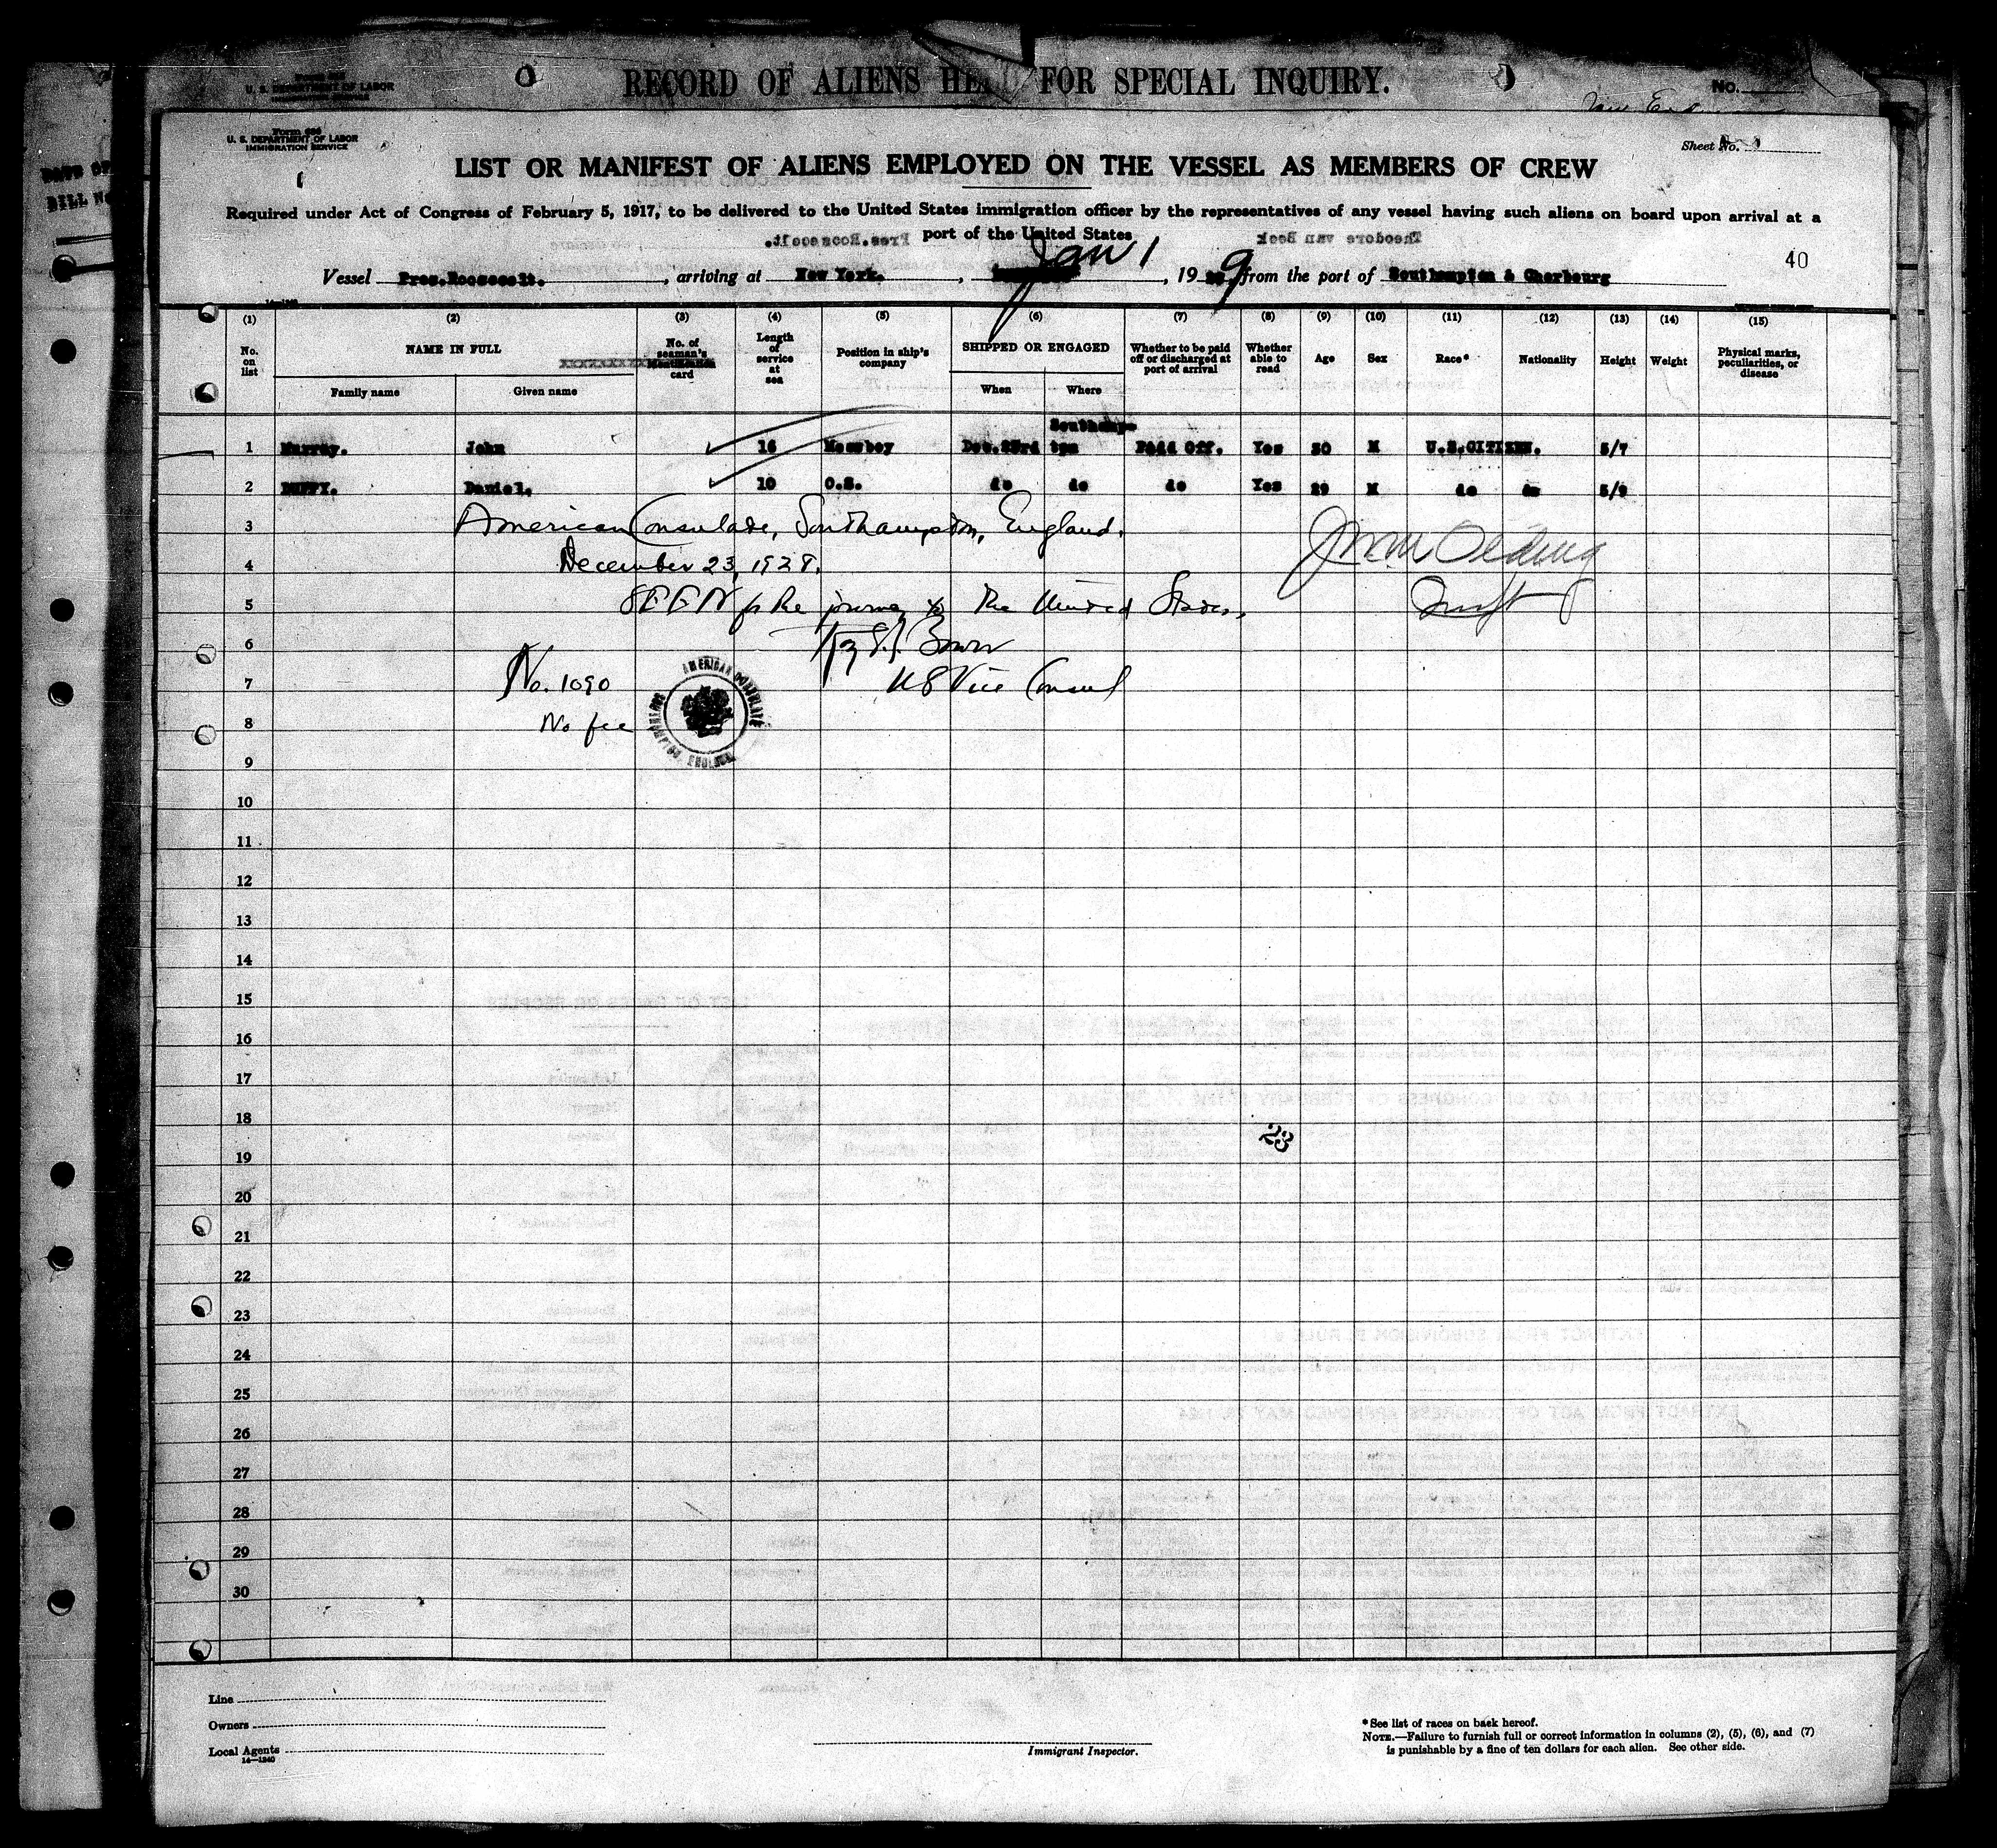 RECORD OF ALIENS HELD FOR SPECIAL INQUIRY.
No.
U. S. DEPARTMENT OF LABOR
DATE OF
BILL No
Form 686
U. S. DEPARTMENT OF LABOR
IMMIGRATION SERVICE
Sheet No.
LIST OR MANIFEST OF ALIENS EMPLOYED ON THE VESSEL AS MEMBERS OF CREW
Required under Act of Congress of February 5, 1917, to be delivered to the United States immigration officer by the representatives of any vessel having such aliens on board upon arrival at a
port of the United States
40
Vessel Pres.Roosevelt. , arriving at New York. , Jan 1 , 19 29 from the port of Southampton & Cherbourg
14—1240
(1) (2) (3) (4) (5) (6) (7) (8) (9) (10) (11) (12) (13) (14) (15)
No. on list
NAME IN FULL
Family name
Given name
No. of seaman's identification card
Length of service at sea
Position in ship's company
SHIPPED OR ENGAGED
When
Where
Whether to be paid off or discharged at port of arrival
Whether able to read
Age
Sex
Race*
Nationality
Height
Weight
Physical marks, peculiarities, or disease
1 Murray. John 16 Messboy Dec.23rd Southampton Paid Off. Yes 30 M U.S.CITIZEN. 5/7
2 DUFFY. Daniel. 10 O.S. do do do Yes 29 M do do 5/9
3 American Consulate, Southampton, England.
4 December 23, 1928.
5 SEEN for the journey to the United States.
6
7 No. 1090 US Vice Consul
AMERICAN CONSULATE SOUTHAMPTON, ENGLAND
8 No fee
9
10
11
12
13
14
15
16
17
18
23
19
20
21
22
23
24
25
26
27
28
29
30
Line
Owners
Local Agents
14—1240
Immigrant Inspector.
*See list of races on back hereof.
NOTE.—Failure to furnish full or correct information in columns (2), (5), (6), and (7)
is punishable by a fine of ten dollars for each alien. See other side.